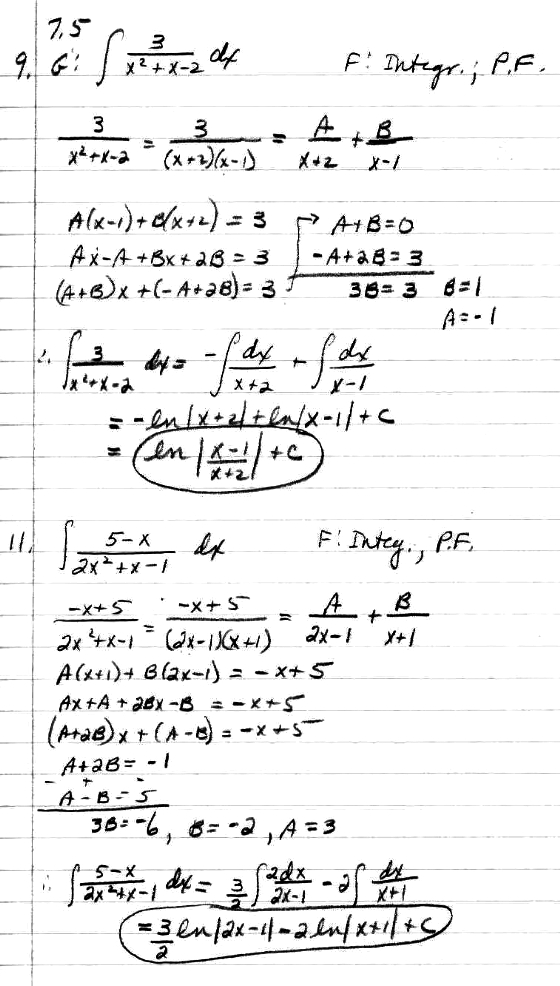 7.5
9. G: ∫ 3/(x²+x-2) dx F: Integr.; P.F.
3/(x²+x-2) = 3/((x+2)(x-1)) = A/(x+2) + B/(x-1)
A(x-1)+B(x+2) = 3 → A+B=0
Ax-A+Bx+2B = 3 -A+2B=3
(A+B)x+(-A+2B)=3 3B=3 B=1
A=-1
∴ ∫ 3/(x²+x-2) dx = -∫ dx/(x+2) + ∫ dx/(x-1)
= -ln|x+2|+ln|x-1|+C
= ln|(x-1)/(x+2)|+C
11. ∫ (5-x)/(2x²+x-1) dx F: Integ., P.F.
(-x+5)/(2x²+x-1) = (-x+5)/((2x-1)(x+1)) = A/(2x-1) + B/(x+1)
A(x+1)+B(2x-1) = -x+5
Ax+A+2Bx-B = -x+5
(A+2B)x+(A-B) = -x+5
A+2B= -1
- + -
A-B=5
3B=-6, B=-2, A=3
∴ ∫ (5-x)/(2x²+x-1) dx = 3/2 ∫ 2dx/(2x-1) - 2∫ dx/(x+1)
= 3/2 ln|2x-1|-2ln|x+1|+C